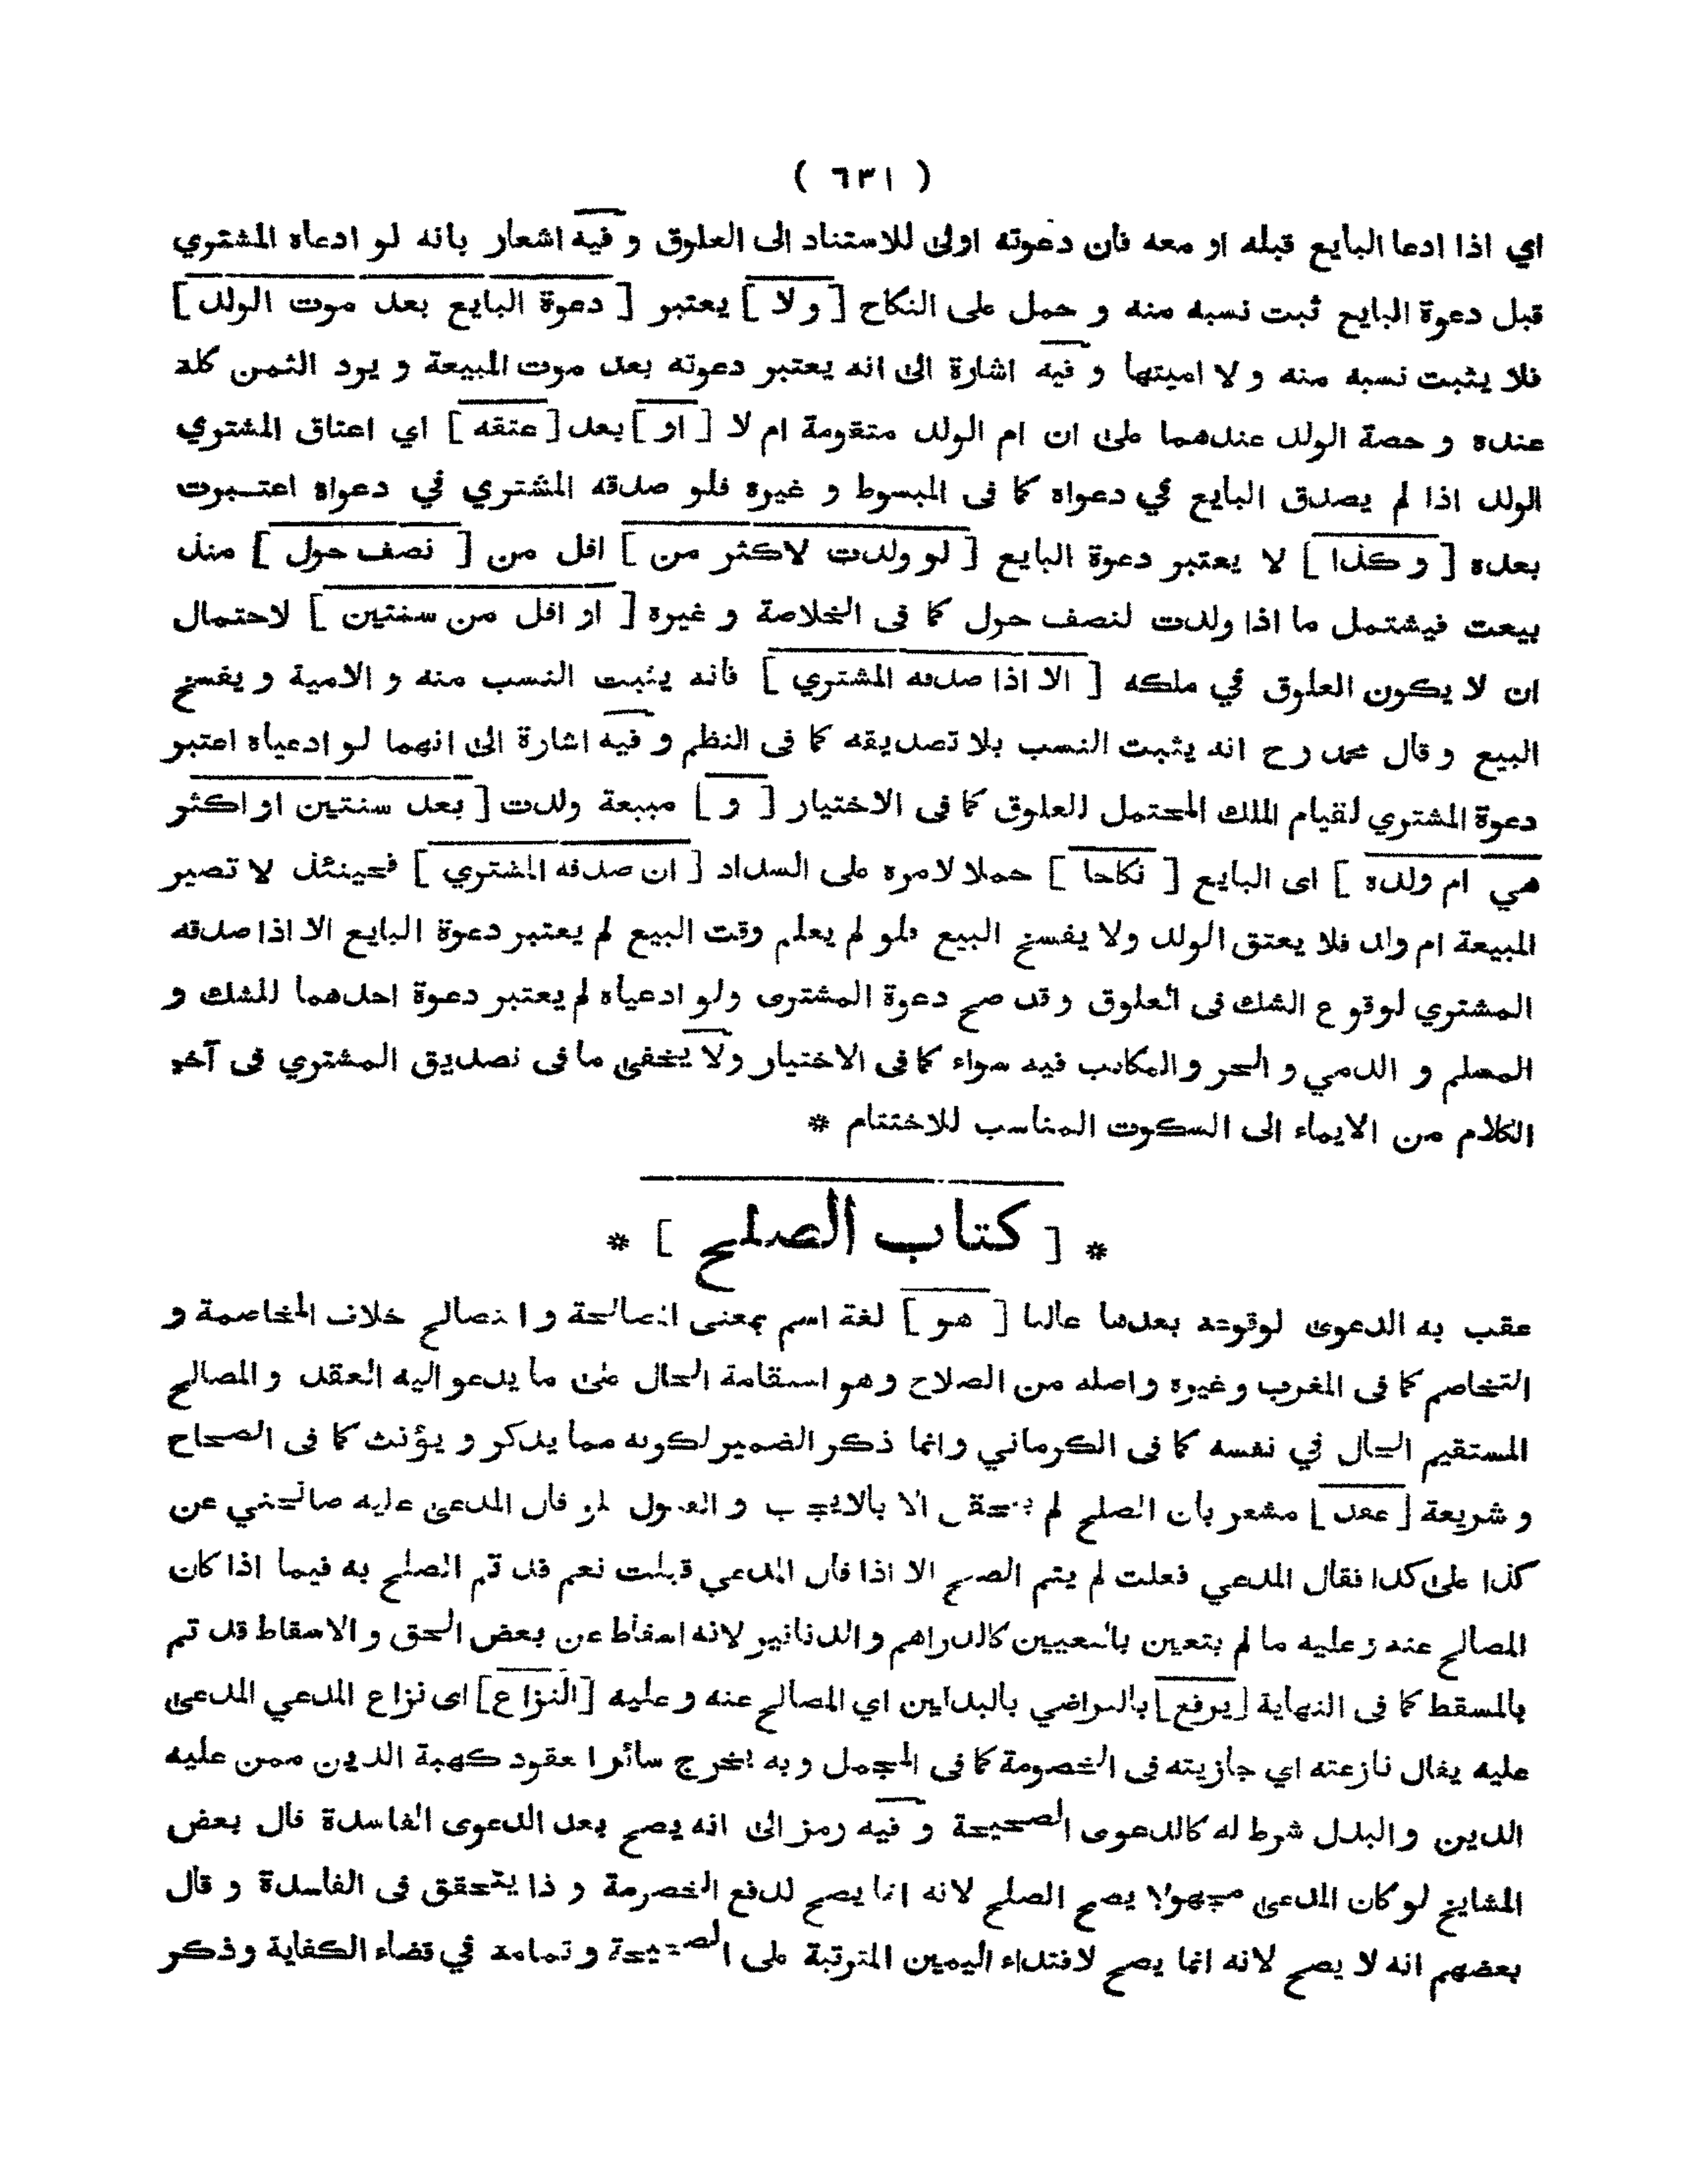 ( ٦٣١ )
اي اذا ادعا البايع قبله او معه فان دعوته اولى للاستناد الى العلوق و فيه اشعار بانه لو ادعاه المشتري
قبل دعوة البايع ثبت نسبه منه و حمل على النكاح [ و لا ] يعتبر [ دعوة البايع بعد موت الولد ]
فلا يثبت نسبه منه و لا اميتها و فيه اشارة الى انه يعتبر دعوته بعد موت المبيعة و يرد الثمن كله
عنده و حصة الولد عندهما على ان ام الولد متقومة ام لا [ او ] بعد [ عتقه ] اي اعتاق المشتري
الولد اذا لم يصدق البايع في دعواه كما فى المبسوط و غيره فلو صدقه المشتري في دعواه اعتبرت
بعده [ و كذا ] لا يعتبر دعوة البايع [ لو ولدت لاكثر من ] اقل من [ نصف حول ] منذ
بيعت فيشتمل ما اذا ولدت لنصف حول كما فى الخلاصة و غيره [ او اقل من سنتين ] لاحتمال
ان لا يكون العلوق في ملكه [ الا اذا صدقه المشتري ] فانه يثبت النسب منه و الامية و يفسخ
البيع و قال محمد رح انه يثبت النسب بلا تصديقه كما فى النظم و فيه اشارة الى انهما لو ادعياه اعتبر
دعوة المشتري لقيام الملك المحتمل للعلوق كما فى الاختيار [ و ] مبيعة ولدت [ بعد سنتين او اكثر
هي ام ولده ] اى البايع [ نكاحا ] حملا لامره على السداد [ ان صدقه المشتري ] فحينئذ لا تصير
المبيعة ام ولد فلا يعتق الولد ولا يفسخ البيع فلو لم يعلم وقت البيع لم يعتبر دعوة البايع الا اذا صدقه
المشتري لوقوع الشك فى العلوق و قد صح دعوة المشترى ولو ادعياه لم يعتبر دعوة احدهما للشك و
المسلم و الذمي و الحر و المكاتب فيه سواء كما فى الاختيار ولا يخفى ما فى تصديق المشتري فى آخر
الكلام من الايماء الى السكوت المناسب للاختتام *
* [ كتاب الصلح ] *
عقب به الدعوى لوقوعه بعدها غالبا [ هو ] لغة اسم بمعنى المصالحة و التصالح خلاف المخاصمة و
التخاصم كما فى المغرب و غيره و اصله من الصلاح و هو استقامة الحال على ما يدعو اليه العقد و المصالح
المستقيم الحال في نفسه كما فى الكرماني و انما ذكر الضمير لكونه مما يذكر و يؤنث كما فى الصحاح
و شريعة [ عقد ] مشعر بان الصلح لم يتحقق الا بالايجاب و القبول فلو قال المدعى عليه صالحتني عن
كذا على كذا فقال المدعي فعلت لم يتم الصلح الا اذا قال المدعي قبلت نعم قد تم الصلح به فيما اذا كان
المصالح عنه و عليه ما لم يتعين بالتعيين كالدراهم و الدنانير لانه اسقاط عن بعض الحق و الاسقاط قد تم
بالمسقط كما فى النهاية [ يرفع ] بالتراضي بالبدلين اي المصالح عنه و عليه [ النزاع ] اى نزاع المدعي المدعى
عليه يقال نازعته اي جازيته فى الخصومة كما فى المجمل و به اخرج سائر العقود كهبة الدين ممن عليه
الدين و البدل شرط له كالدعوى الصحيحة و فيه رمز الى انه يصح بعد الدعوى الفاسدة قال بعض
المشايخ لو كان المدعى مجهولا يصح الصلح لانه انما يصح لدفع الخصومة و ذا يتحقق فى الفاسدة و قال
بعضهم انه لا يصح لانه انما يصح لافتداء اليمين المترتبة على الصحيحة و تمامه في قضاء الكفاية و ذكر